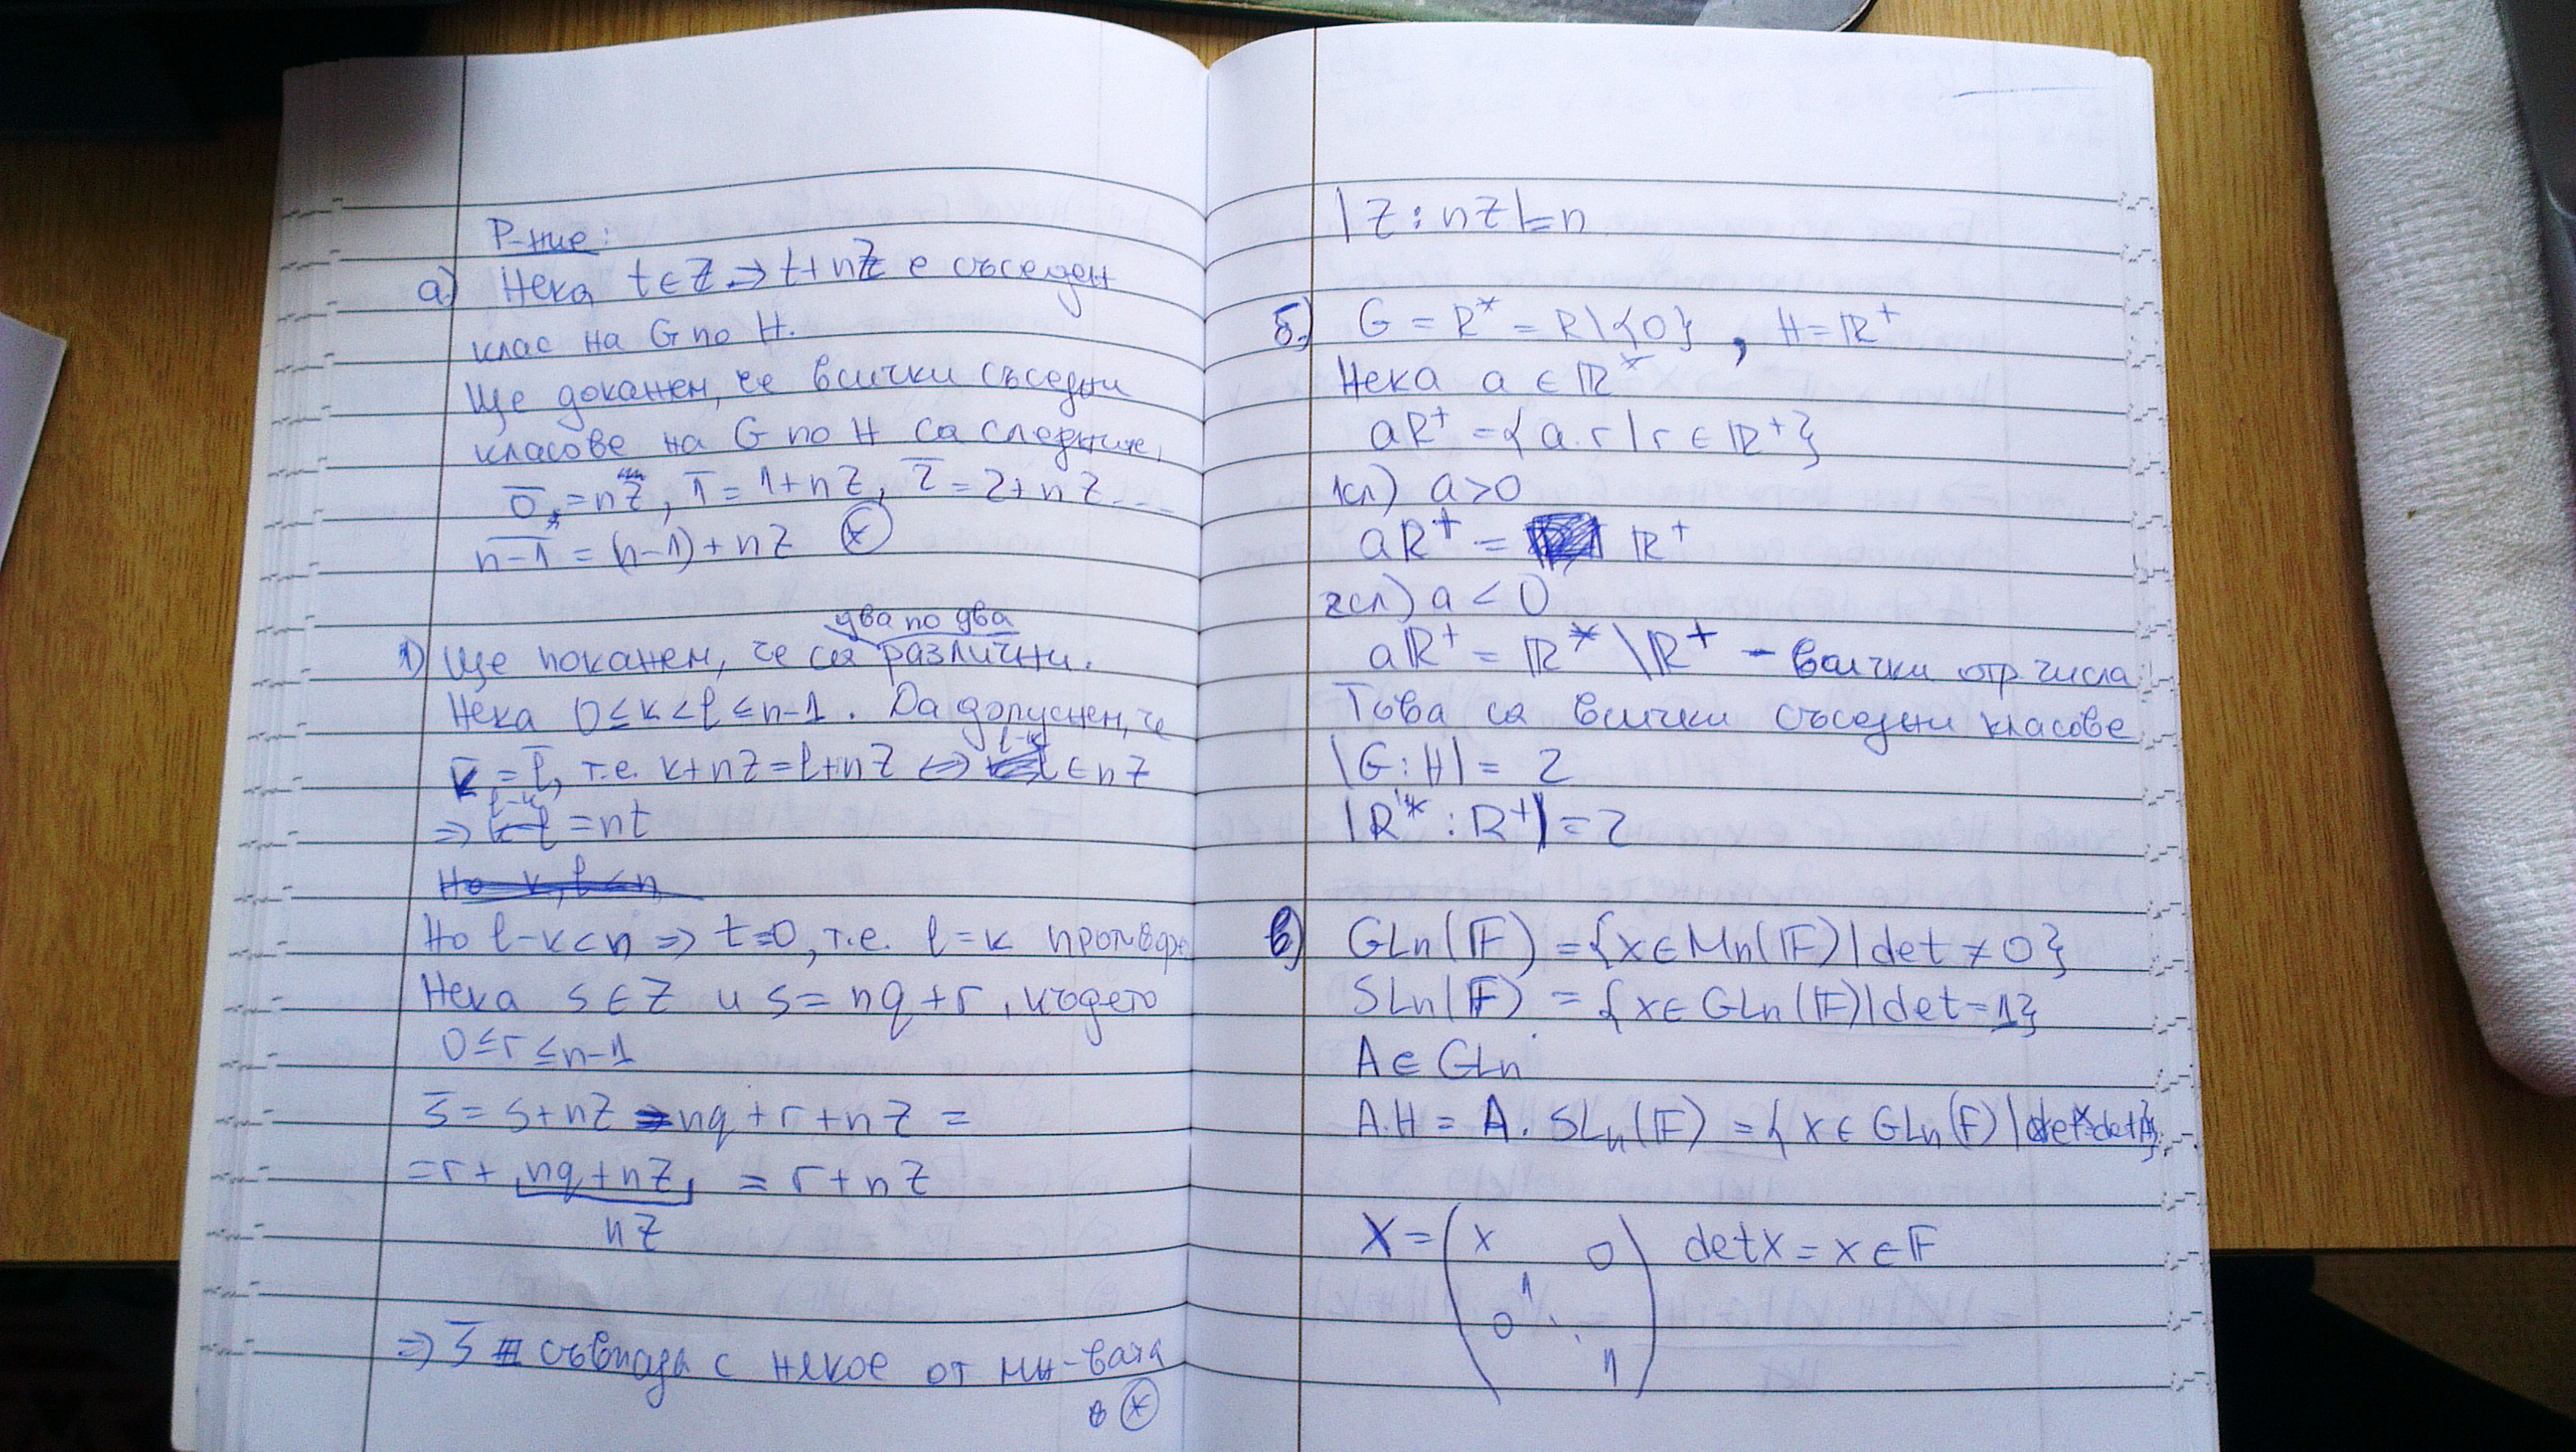 Р-ние:
а) Нека t ∈ Z ⇒ t+nZ е съседен
клас на G по H.
Ще докажем, че всички съседни
класове на G по H са следните,
0̅ = nZ, 1̅ = 1+nZ, 2̅ = 2+nZ...
n-1 = (n-1)+nZ (*)
два по два
1) Ще покажем, че са различни.
Нека 0 ≤ k < l ≤ n-1. Да допуснем, че
k̅ = l̅, т.е. k+nZ = l+nZ ⇔ l-k ∈ nZ
⇒ l-k = nt
Но k, l < n
Но l-k < n ⇒ t=0, т.е. l=k
Нека s ∈ Z и s = nq+r, където
0 ≤ r ≤ n-1
s̅ = s+nZ = nq+r+nZ =
= r + nq+nZ = r+nZ
nZ
⇒ s̅ съвпада с някое от мн-вата
в (*)
|Z : nZ| = n
б) G = R* = R\{0}, H = ℝ⁺
Нека a ∈ ℝ*
aR⁺ = {a.r | r ∈ ℝ⁺}
1сл) a>0
aR⁺ = ℝ⁺
2сл) a < 0
aℝ⁺ = ℝ* \ ℝ⁺ - всички отр числа
Това са всички съседни класове
|G : H| = 2
|R* : R⁺| = 2
в) GLn(𝔽) = {x ∈ Mn(𝔽) | det ≠ 0}
SLn(𝔽) = {x ∈ GLn(𝔽) | det = 1}
A ∈ GLn
A.H = A. SLn(𝔽) = {x ∈ GLn(F) | detx=detA}
X = (x 0 detx = x ∈ 𝔽
1
0 ⋱
1)